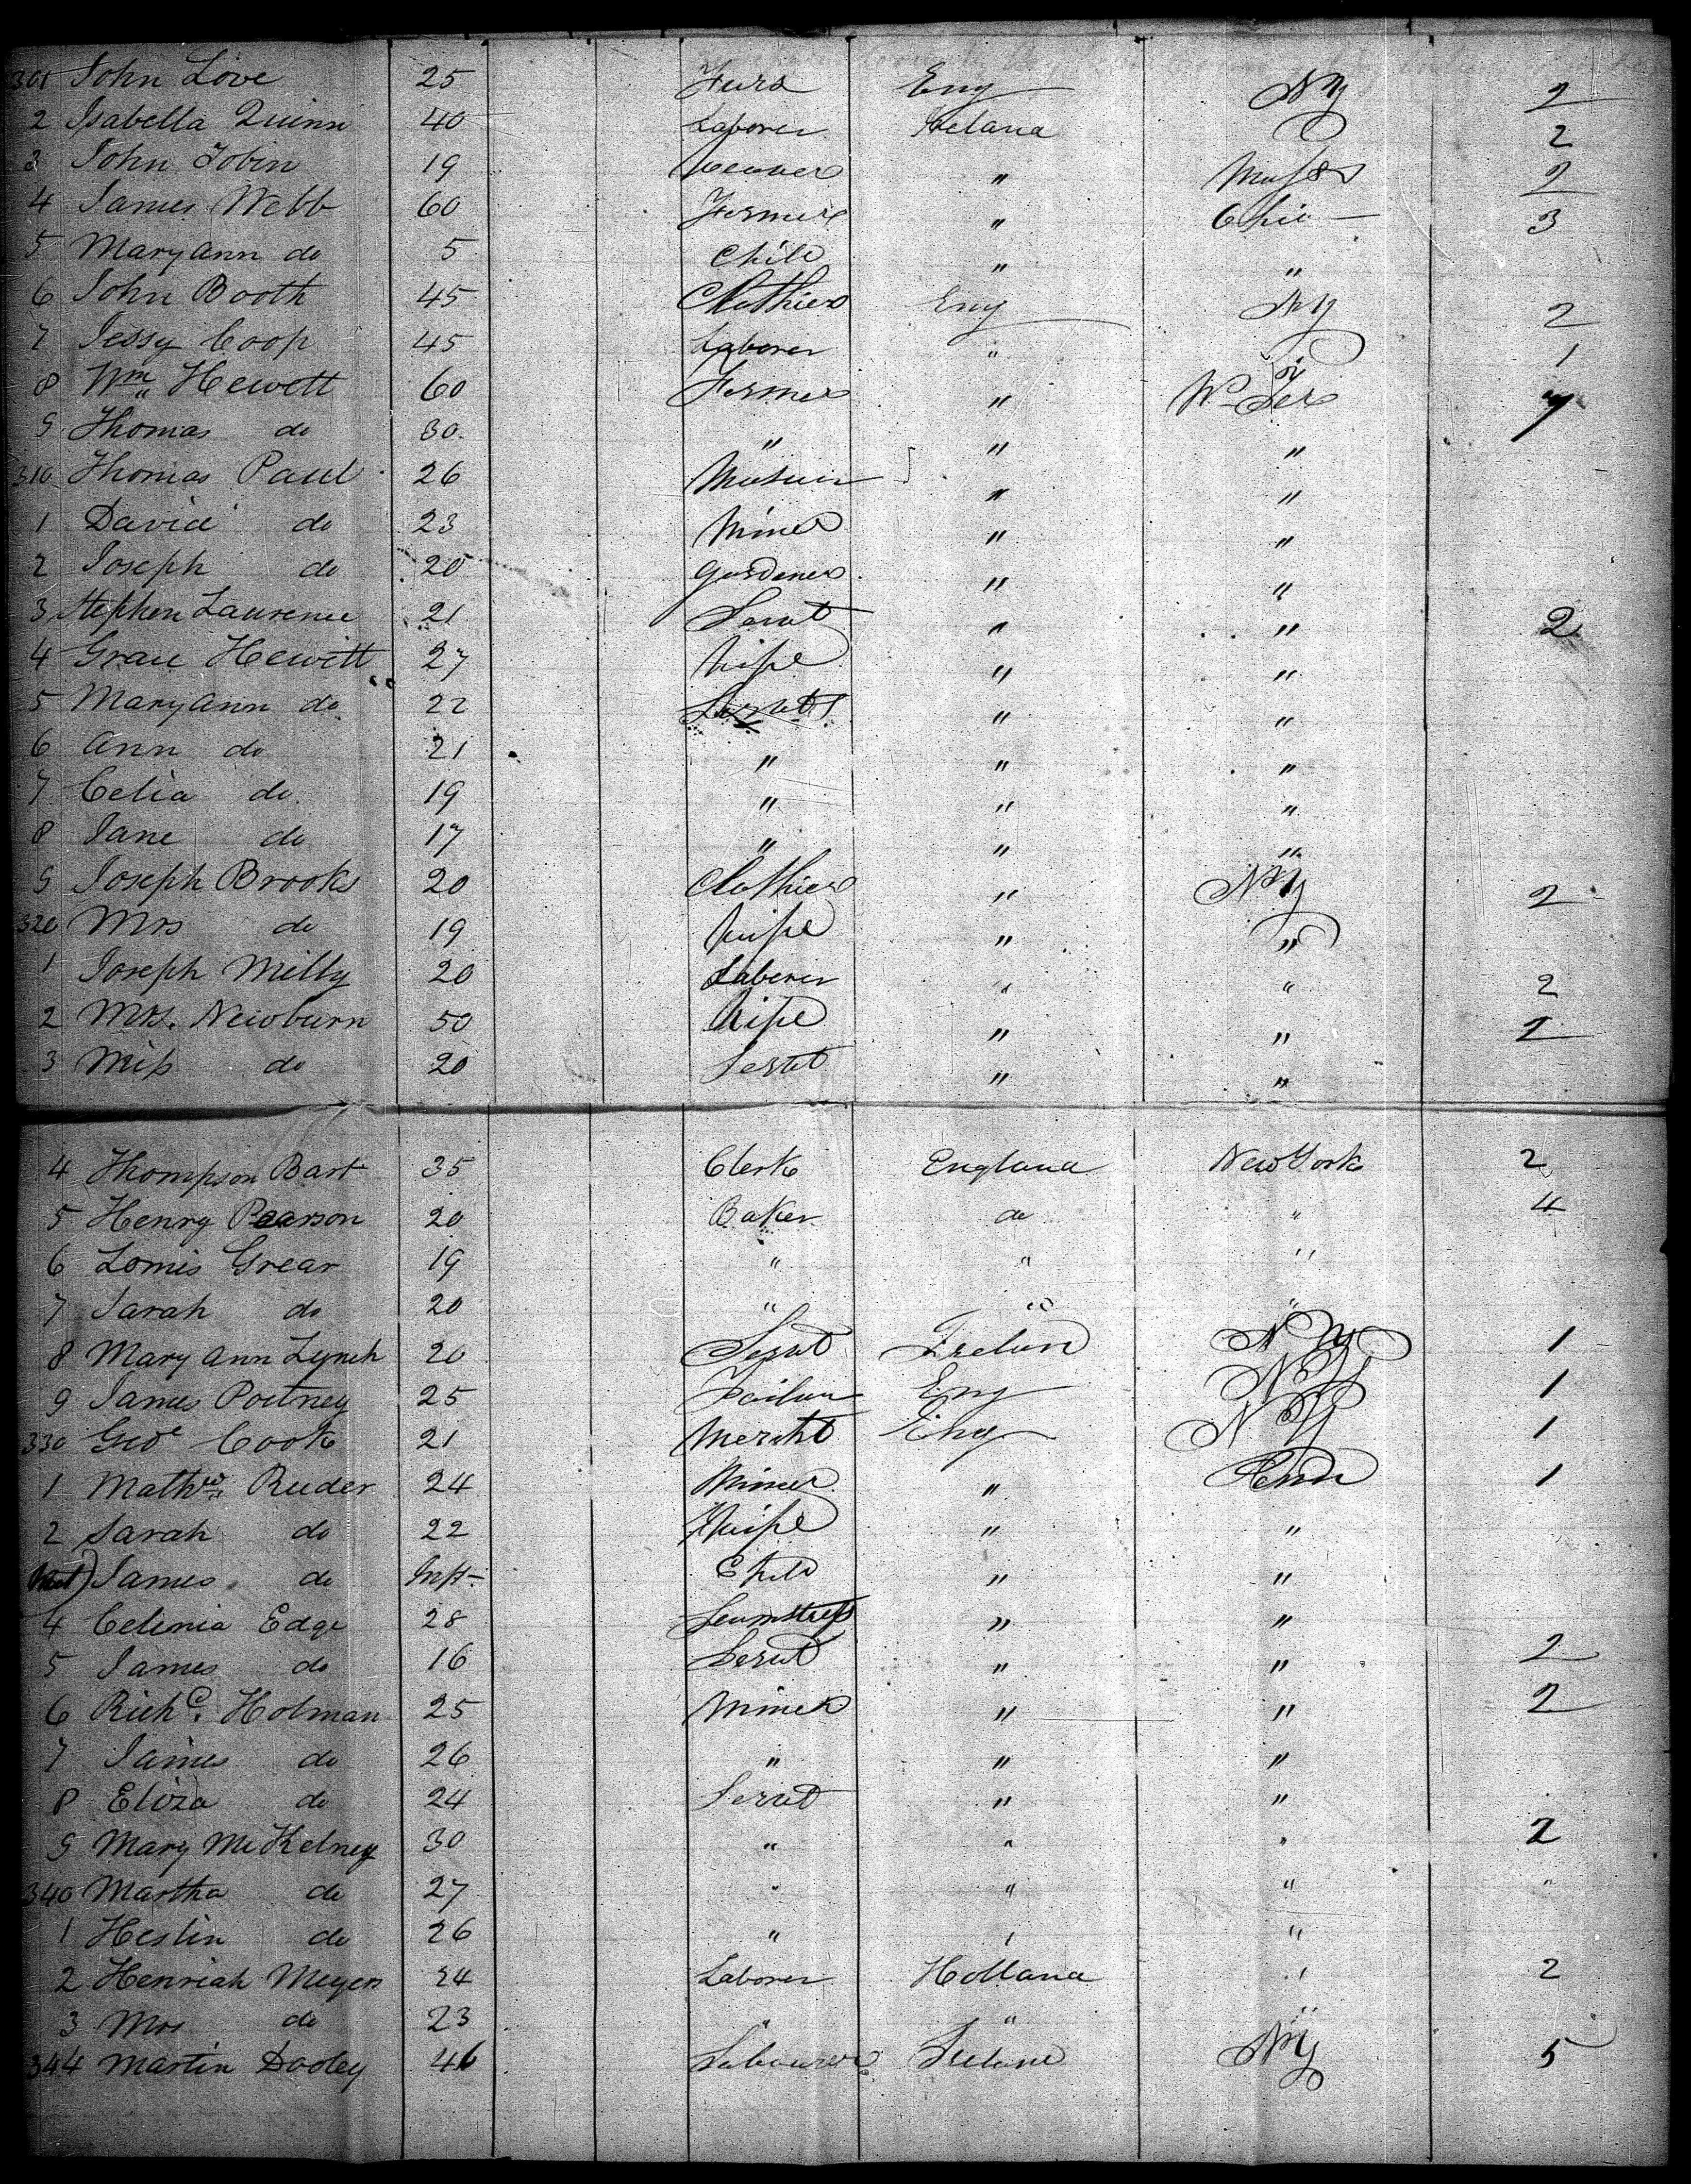 301 John Love 25 Eng NY 2
2 Isabella Quinn 40 Laborer Ireland 2
3 John Tobin 19 Weaver " Mass 2
4 James Webb 60 Farmer " Ohio 3
5 Mary Ann do 5 Child " "
6 John Booth 45 Clothier Eng NY 2
7 Jessy Coop 45 Laborer " 1
8 Wm Hewett 60 Farmer " W Ter 7
9 Thomas do 30 " " "
310 Thomas Paul 26 " "
1 David do 23 Miner " "
2 Joseph do 20 Gardener " "
3 Stephen Laurence 21 Servt " " 2
4 Grace Hewitt 27 Wife " "
5 Mary Ann do 22 Servts " "
6 Ann do 21 " " "
7 Celia do 19 " " "
8 Jane do 17 " " "
9 Joseph Brooks 20 Clothier " NY 2
320 Mrs do 19 Wife " "
1 Joseph Milly 20 Laborer " " 2
2 Mrs. Newburn 50 Wife " " 2
3 Miss do 20 Servt " "
4 Thompson Bart 35 Clerk England New York 2
5 Henry Pearson 20 Baker do " 4
6 Lomis Grear 19 " " "
7 Sarah do 20 " " "
8 Mary Ann Lynch 20 Servt Ireland NY 1
9 James Poitney 25 Eng NY 1
330 Geoe Cook 21 Mercht Eng NY 1
1 Mathw Ruder 24 Miner " Penn 1
2 Sarah do 22 Wife " "
James do Inft Child " "
4 Celinia Edge 28 Seamstress " "
5 James do 16 Servt " " 2
6 Richd. Holman 25 Miner " " 2
7 James do 26 " " "
8 Eliza do 24 Servt " "
9 Mary McKelney 30 " " " 2
340 Martha do 27 " " " "
1 Heslin do 26 " " "
2 Henriah Meyers 24 Laborer Holland " 2
3 Mrs do 23 " " "
344 Martin Dooley 46 Labourer Ireland NY 5